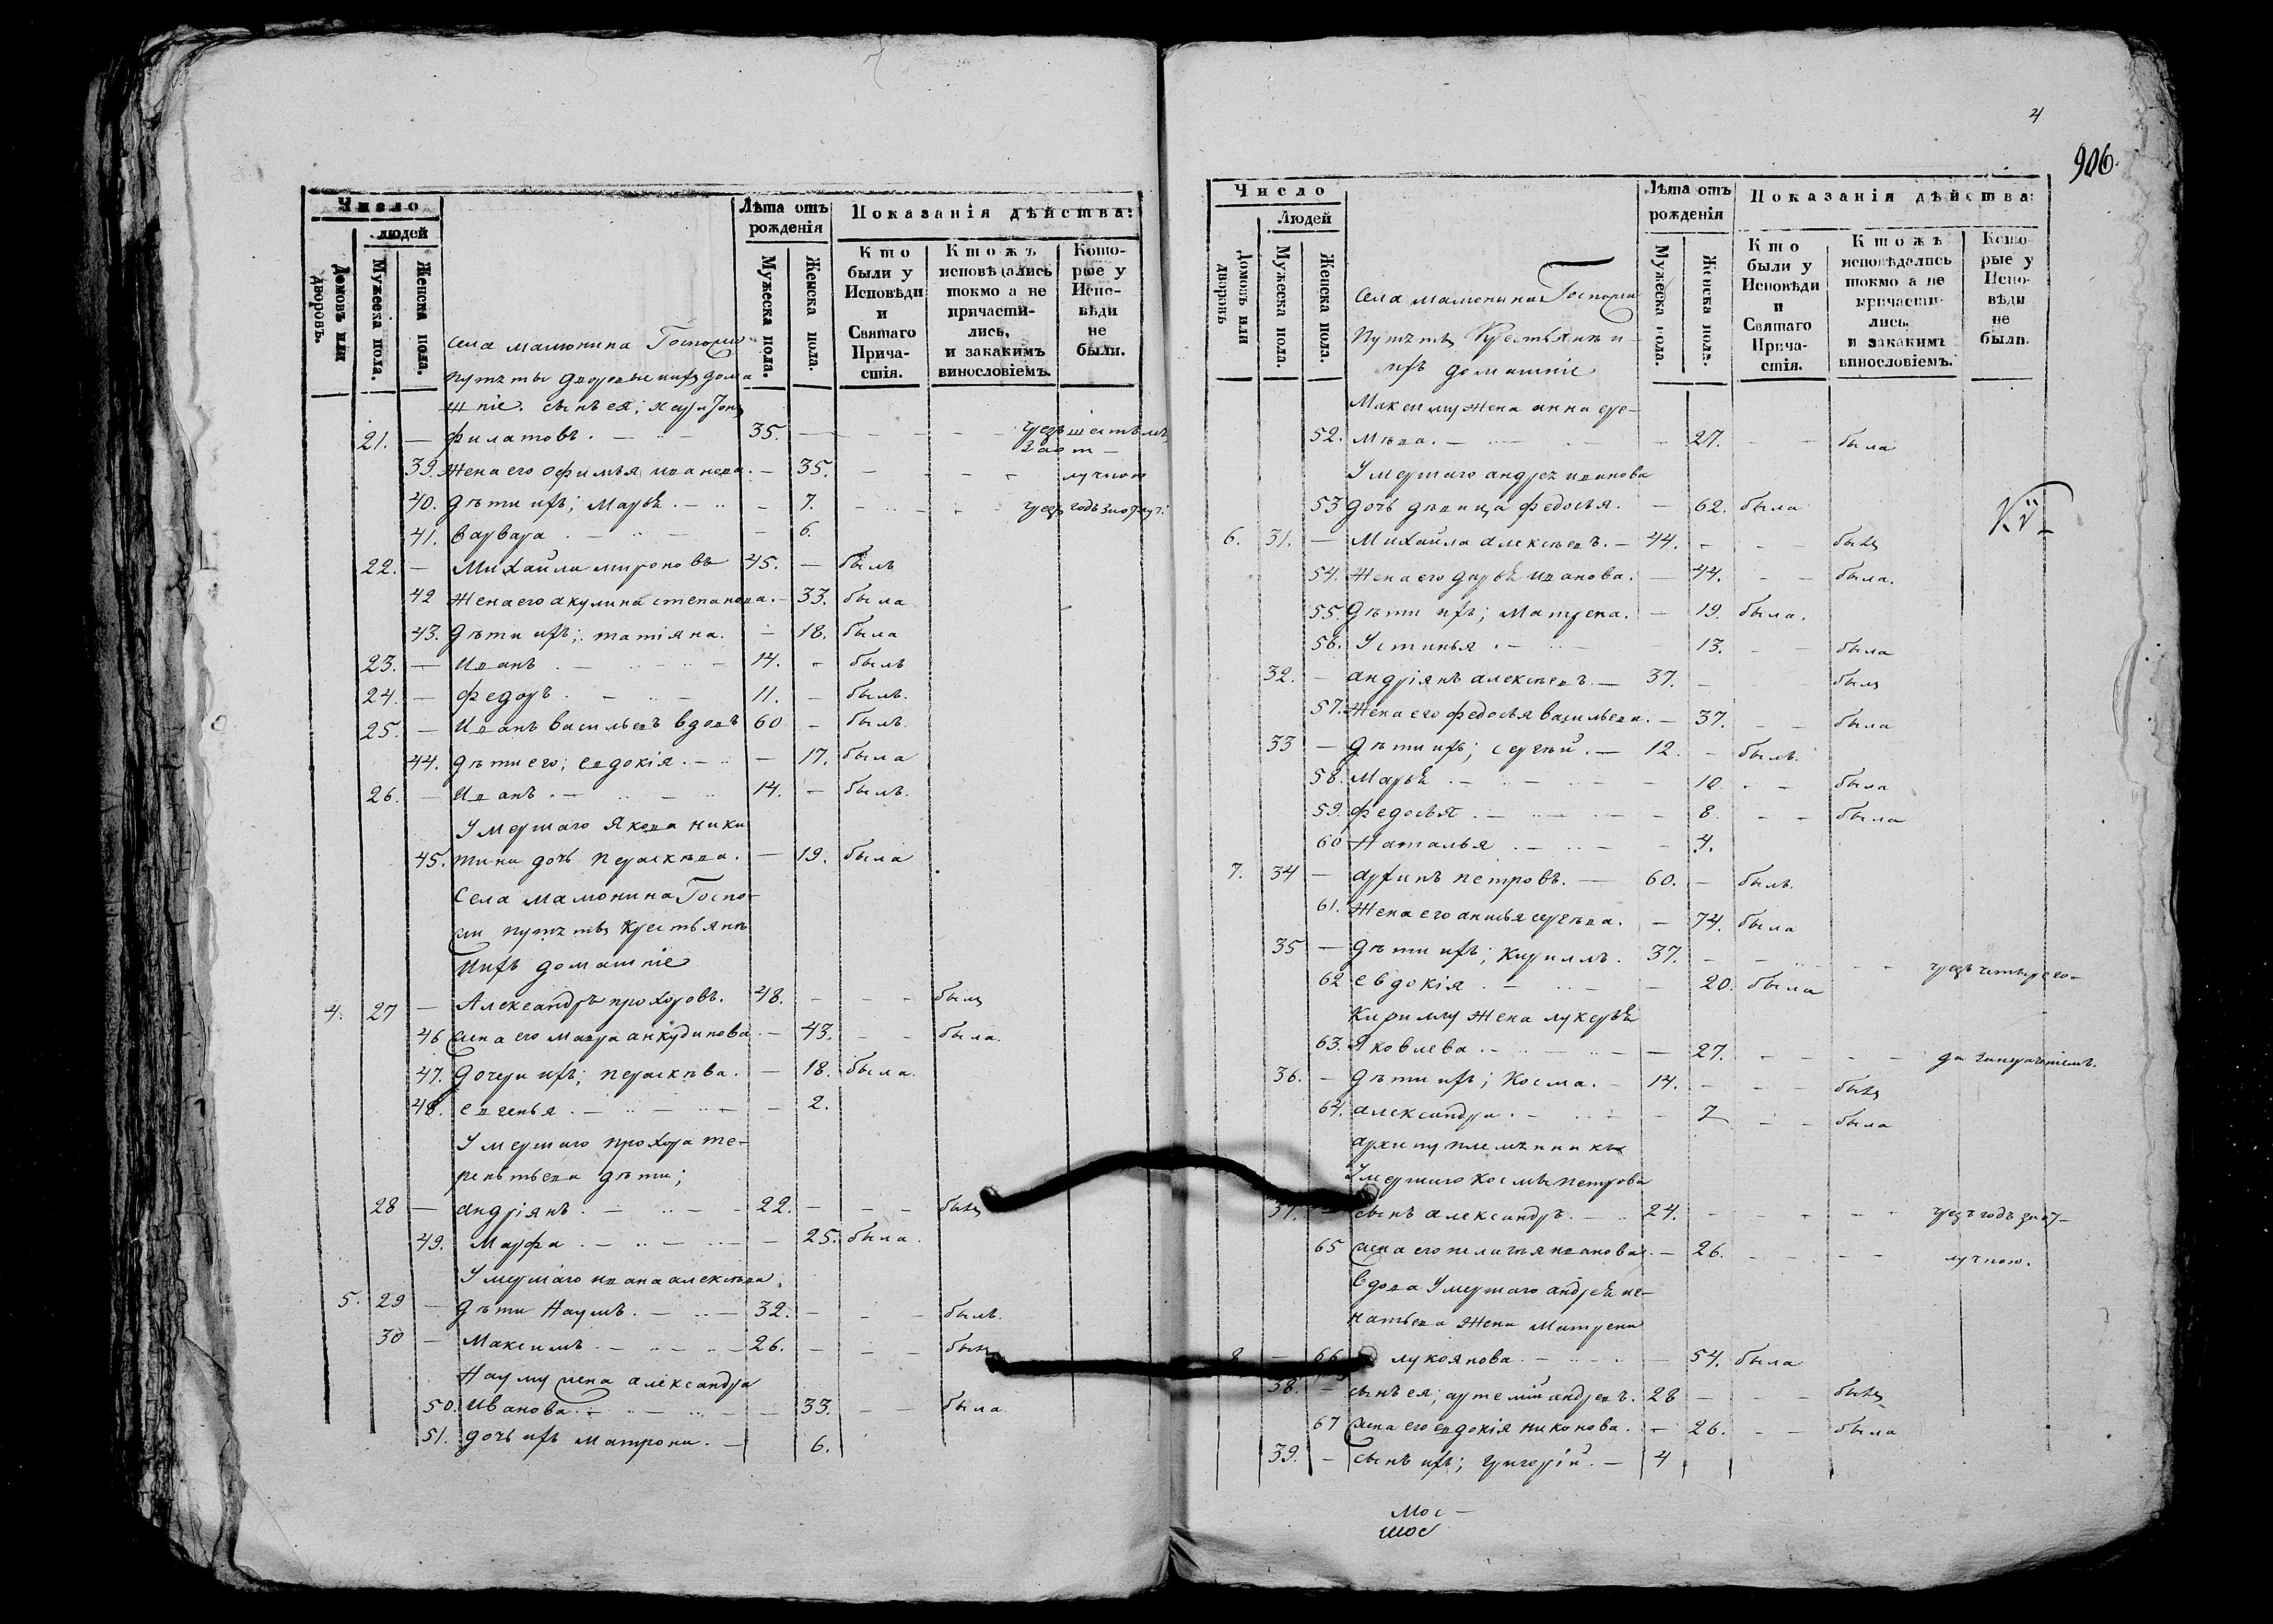 Число
людей
Домовъ или дворовъ.
Мужеска пола.
Женска пола.
Лѣта отъ рожденія
Мужеска пола.
Женска пола.
Показанія дѣйства:
Кто были у Исповѣди и Святаго Причастія.
Ктожъ исповѣдались токмо а не причастились, и закакимъ винословіемъ.
Которые у Исповѣди не были.
села мамонина Госпожи
дворовые ихъ дома
шніе. сынъ ея; харитонъ
21. — филатовъ. — 35. —
39. жена его офимья иванова. — 35. — лучкою
40. дѣти ихъ; Марья. — 7.
41. варвара — 6.
22. — Михайла мироновъ 45. — былъ
42 жена его акулина степанова. — 33. была
43. дѣти ихъ; татіяна. — 18. была
23. — Иванъ — 14. — былъ
24. — федоръ — 11. — былъ.
25. — Иванъ васильевъ вдовъ 60 — былъ.
44. дѣти его; евдокія. — 17. была
26. — Иванъ. — 14. — былъ.
Умершаго Якова ники
45. тина дочь параскѣва. — 19. была
Села мамонина Госпо-
жи крестьянѣ
ихъ домашніе
4. 27 — Александръ прохоровъ. 48. — былъ
46 жена его мавра анкудинова — 43. — была.
47. дочери ихъ; параскѣва. — 18. была.
48. евгенья. — 2.
Умершаго прохора те-
рентьева дѣти;
28 — андріянъ. — 22. — былъ
49. Марфа — 25. была.
Умершаго ивана алексѣева
5. 29 — дѣти Наумъ. — 32. — былъ.
30 — Максимъ — 26. — былъ
Науму жена александра
50. Иванова. — 33. — была.
51. дочь ихъ матрона. — 6.
4
906.
Число
Людей
Домовъ или дворовъ
Мужеска пола.
Женска пола.
Лѣта отъ рожденія
Мужеска пола.
Женска пола.
Показанія дѣйства:
Кто были у Исповѣди и Святаго Причастія.
Ктожъ исповѣдались токмо а не причастились, и закакимъ винословіемъ.
Которые у Исповѣди не были.
села мамонина Госпожи
крестьянѣ и
ихъ домашніе
Максиму жена анна ере-
52. мѣева. — 27. — была
Умершаго андрея иванова
53 дочь дѣвица федосья. — 62. была
6. 31. — Михайла алексѣевъ. — 44. — былъ
54. жена его дарья иванова. — 44. — была.
55. дѣти ихъ; матрена. — 19. была.
56. Устинья. — 13. — была
32. — андріянъ алексѣевъ. — 37. — былъ
57. жена его федосья васильева. — 37. — была
33 — дѣти ихъ; сергѣй. — 12. — былъ.
58. Марья — 10 — была
59. федосья. — 8. — была
60 Наталья — 4.
7. 34 — архипъ петровъ. — 60. — былъ.
61. жена его анисья сергѣева. — 74. была
35 — дѣти ихъ; Кирилъ. 37. — чрезъ четыре го-
62 евдокія — 20. была
Кирилу жена лукерья
63. Яковлева. — 27. —
36. — дѣти ихъ; Косма. — 14. — былъ
64. александра. — 7 — была
архипу племянникъ
Умершаго космы петрова
37. — сынъ александръ. — 24. — чрезъ годъ за от-
65 жена его пелагея иванова. — 26. — лучкою.
вдова Умершаго андрея иг-
натьева жена Матрена
8 — 66 лукоянова. — 54. была
38. — сынъ ея; артемій андреевъ. 28 — былъ
67 жена его евдокія никонова. — 26. — была
39. — сынъ ихъ; григорій. — 4